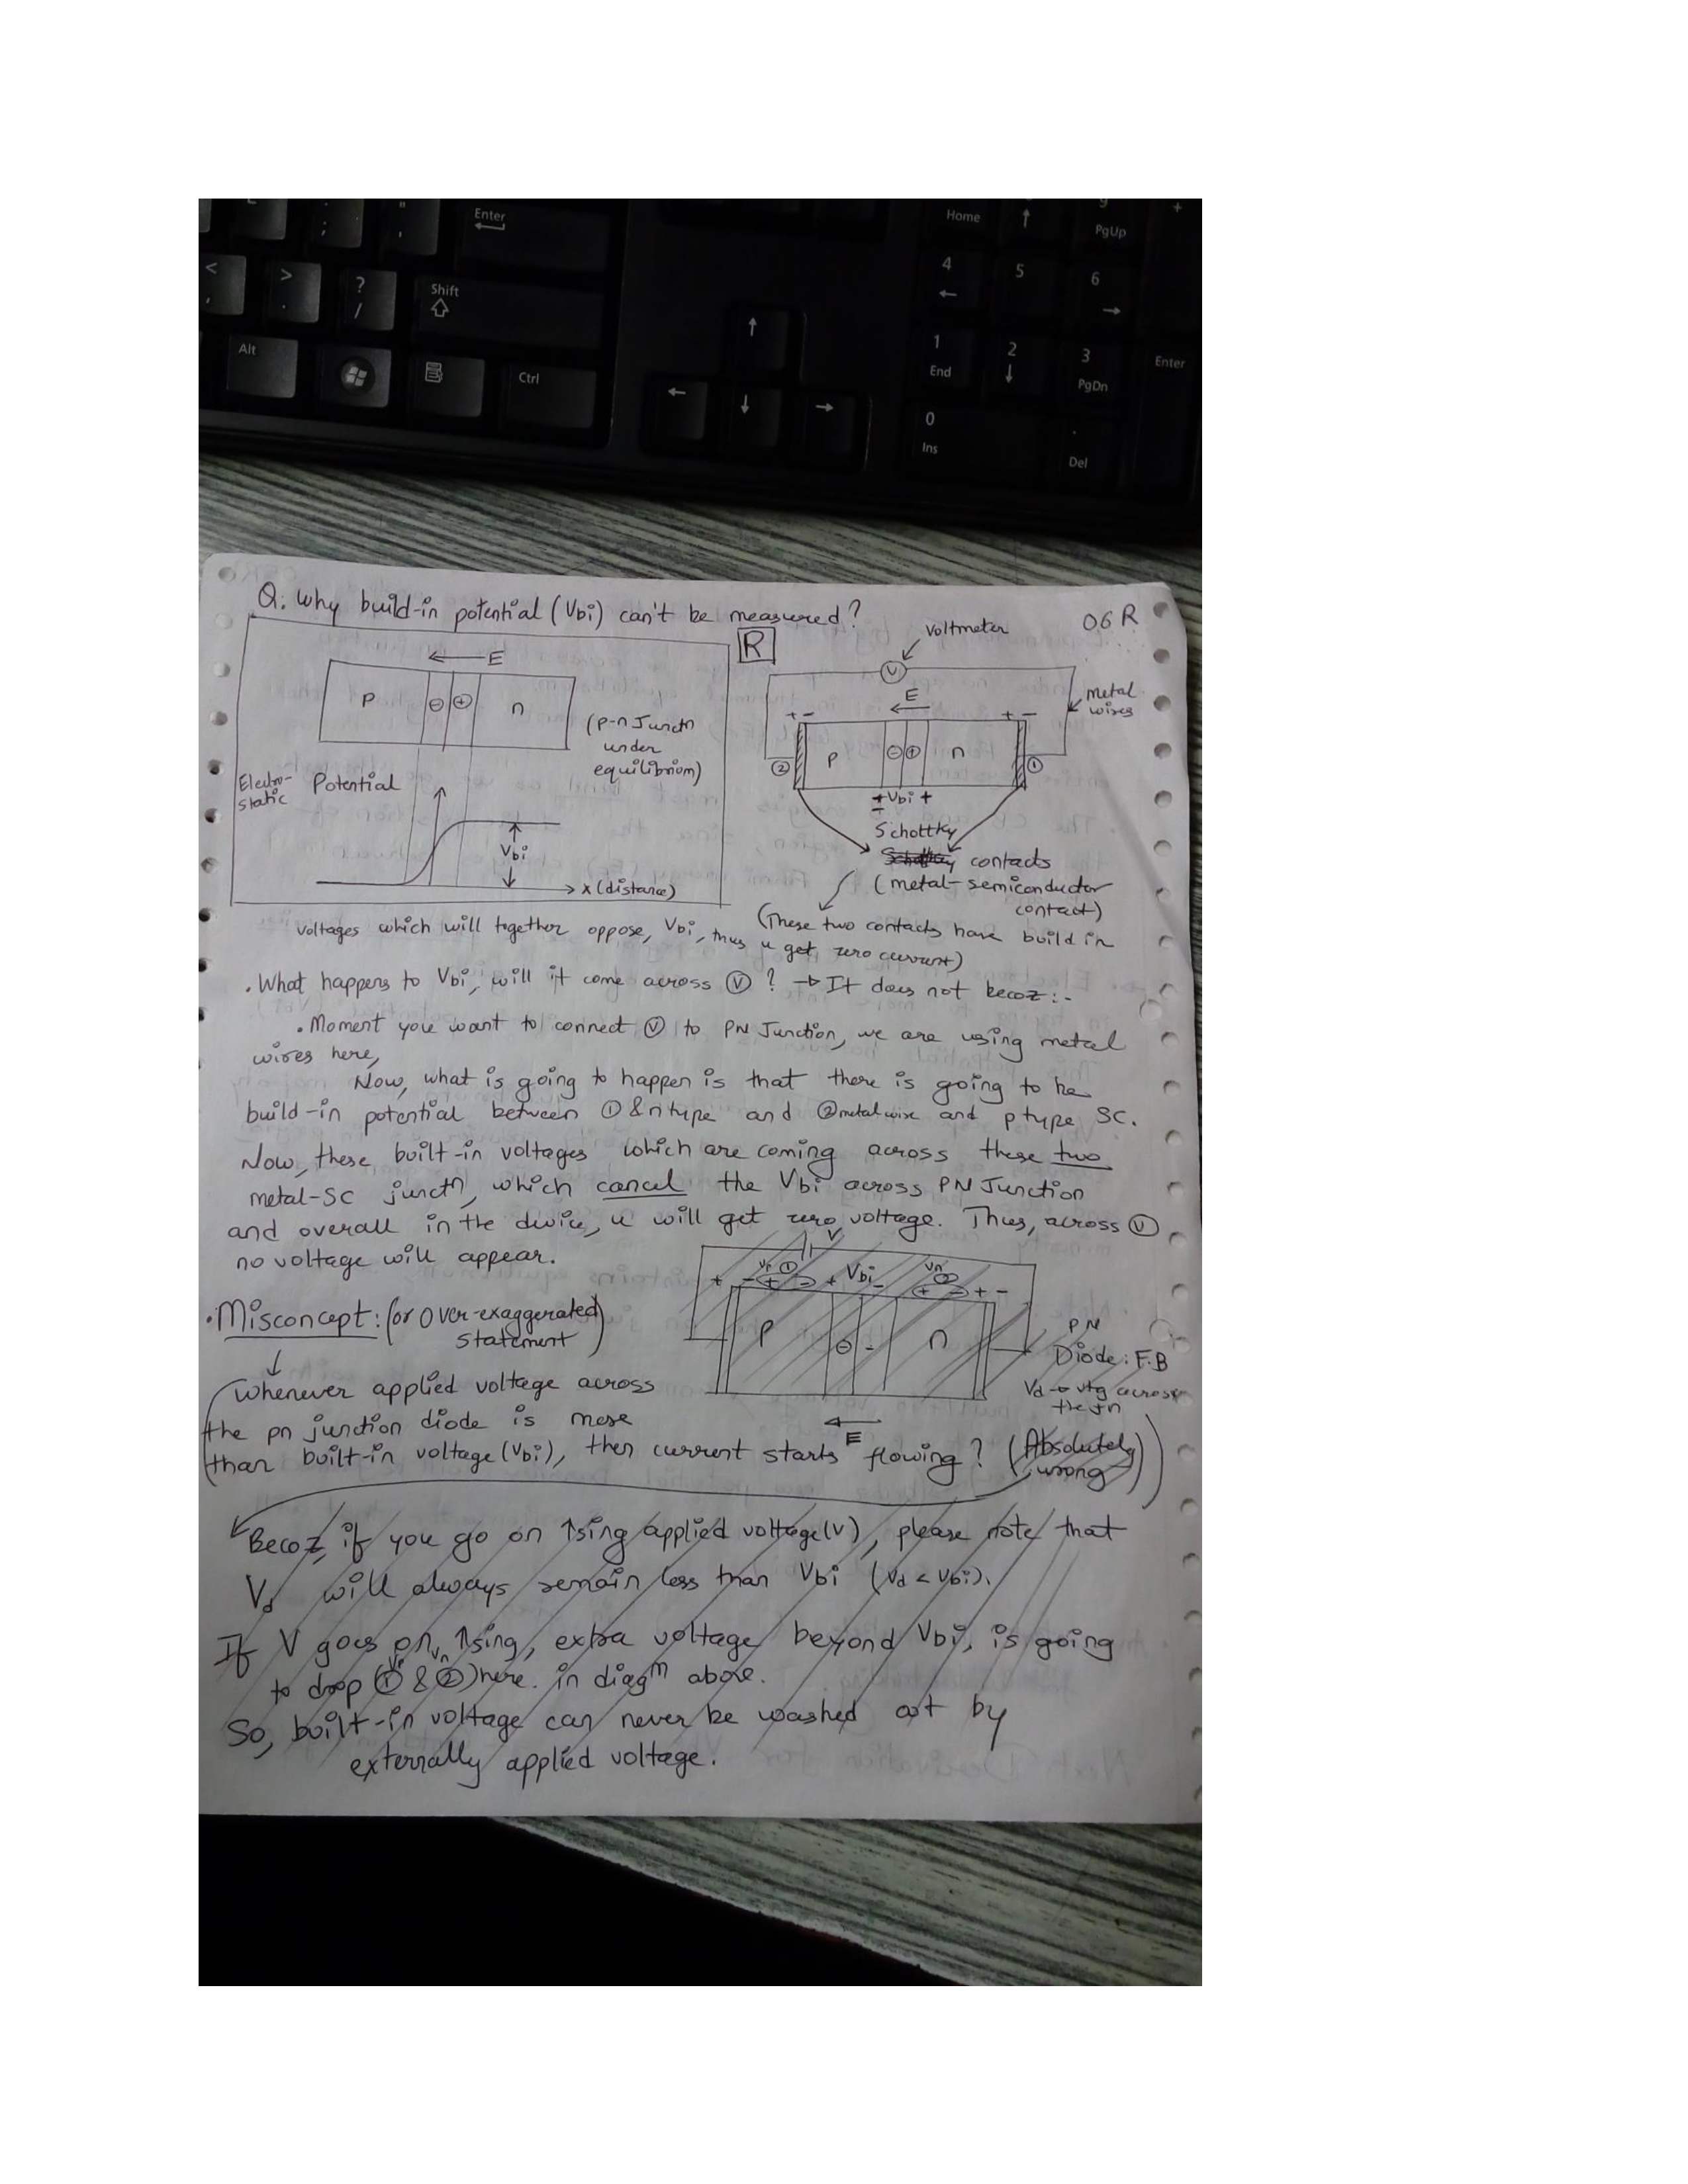 Enter
Home
PgUp
Shift
4
5
6
Alt
Ctrl
1
End
2
3
PgDn
Enter
0
Ins
.
Del
Q. Why build-in potential (Vbi) can't be measured?
06 R
R
Voltmeter
← E
P ⊖ ⊕ n
(P-n Junctn
under
equilibrium)
Electro-
static Potential
Vbi
x (distance)
V
metal
wires
E
+ - + -
② P ⊖ ⊕ n ①
Vbi +
Schottky
contacts
(metal-semiconductor
contact)
(These two contacts have build in
voltages which will together oppose, Vbi, thus u get zero current)
. What happens to Vbi, will it come across Ⓥ ? → It does not becoz:-
. Moment you want to connect Ⓥ to PN Junction, we are using metal
wires here,
Now, what is going to happen is that there is going to be
build-in potential between ① & n type and ② metal wire and p type SC.
Now, these built-in voltages which are coming across these two
metal-SC junctn, which cancel the Vbi across PN Junction
and overall in the device, u will get zero voltage. Thus, across Ⓥ
no voltage will appear.
V
+ - Vp ① + - + Vbi - Vn ② + - + -
P ⊖ - n
E
PN
Diode: F.B
Vd → vtg across
the Jn
. Misconcept: (or Over-exaggerated
statement)
Whenever applied voltage across
the pn junction diode is more
than built-in voltage (Vbi), then current starts flowing? (Absolutely
wrong)
Becoz, if you go on ↑sing applied voltage (V), please note that
Vd will always remain less than Vbi (Vd < Vbi).
If V goes on ↑sing, extra voltage beyond Vbi, is going
to drop (① Vp & ② Vn) here. in diagm above.
So, built-in voltage can never be washed out by
externally applied voltage.